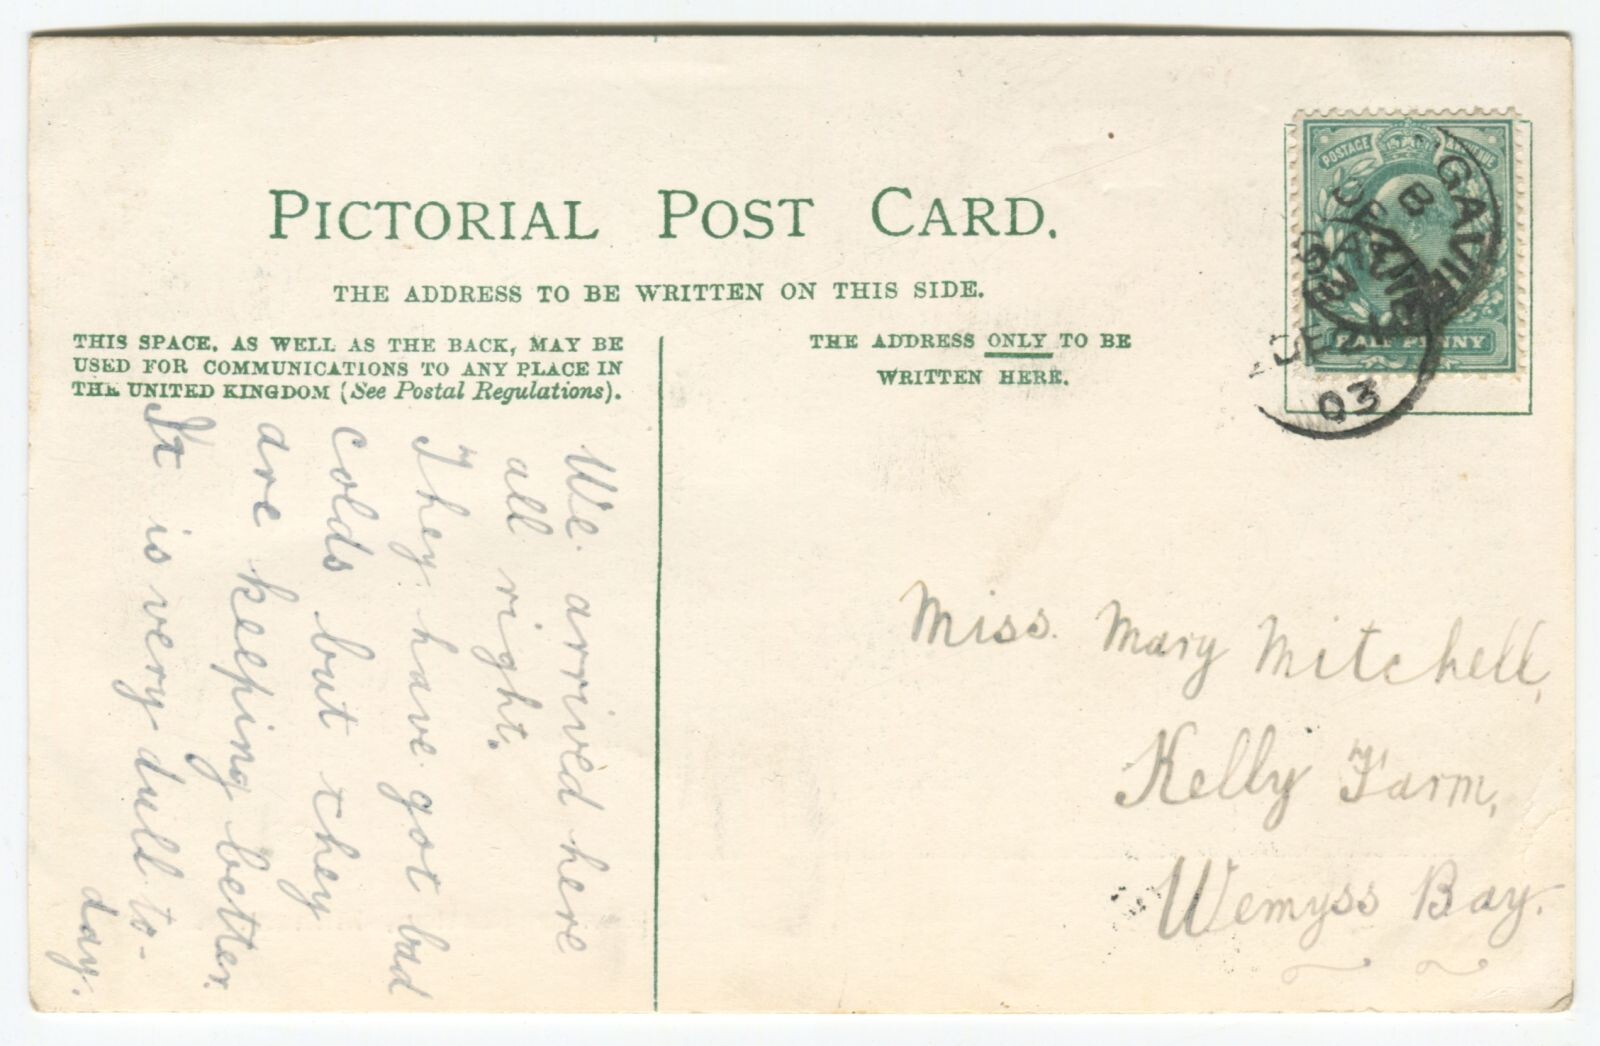 PICTORIAL POST CARD.
THE ADDRESS TO BE WRITTEN ON THIS SIDE.
THIS SPACE, AS WELL AS THE BACK, MAY BE
USED FOR COMMUNICATIONS TO ANY PLACE IN
THE UNITED KINGDOM (See Postal Regulations).
THE ADDRESS ONLY TO BE
WRITTEN HERE.
POSTAGE
HALF PENNY
B
03
We arrived here
all right.
They have got bad
colds but they
are keeping better.
It is very dull to-
day.
Miss. Mary Mitchell,
Kelly Farm,
Wemyss Bay.